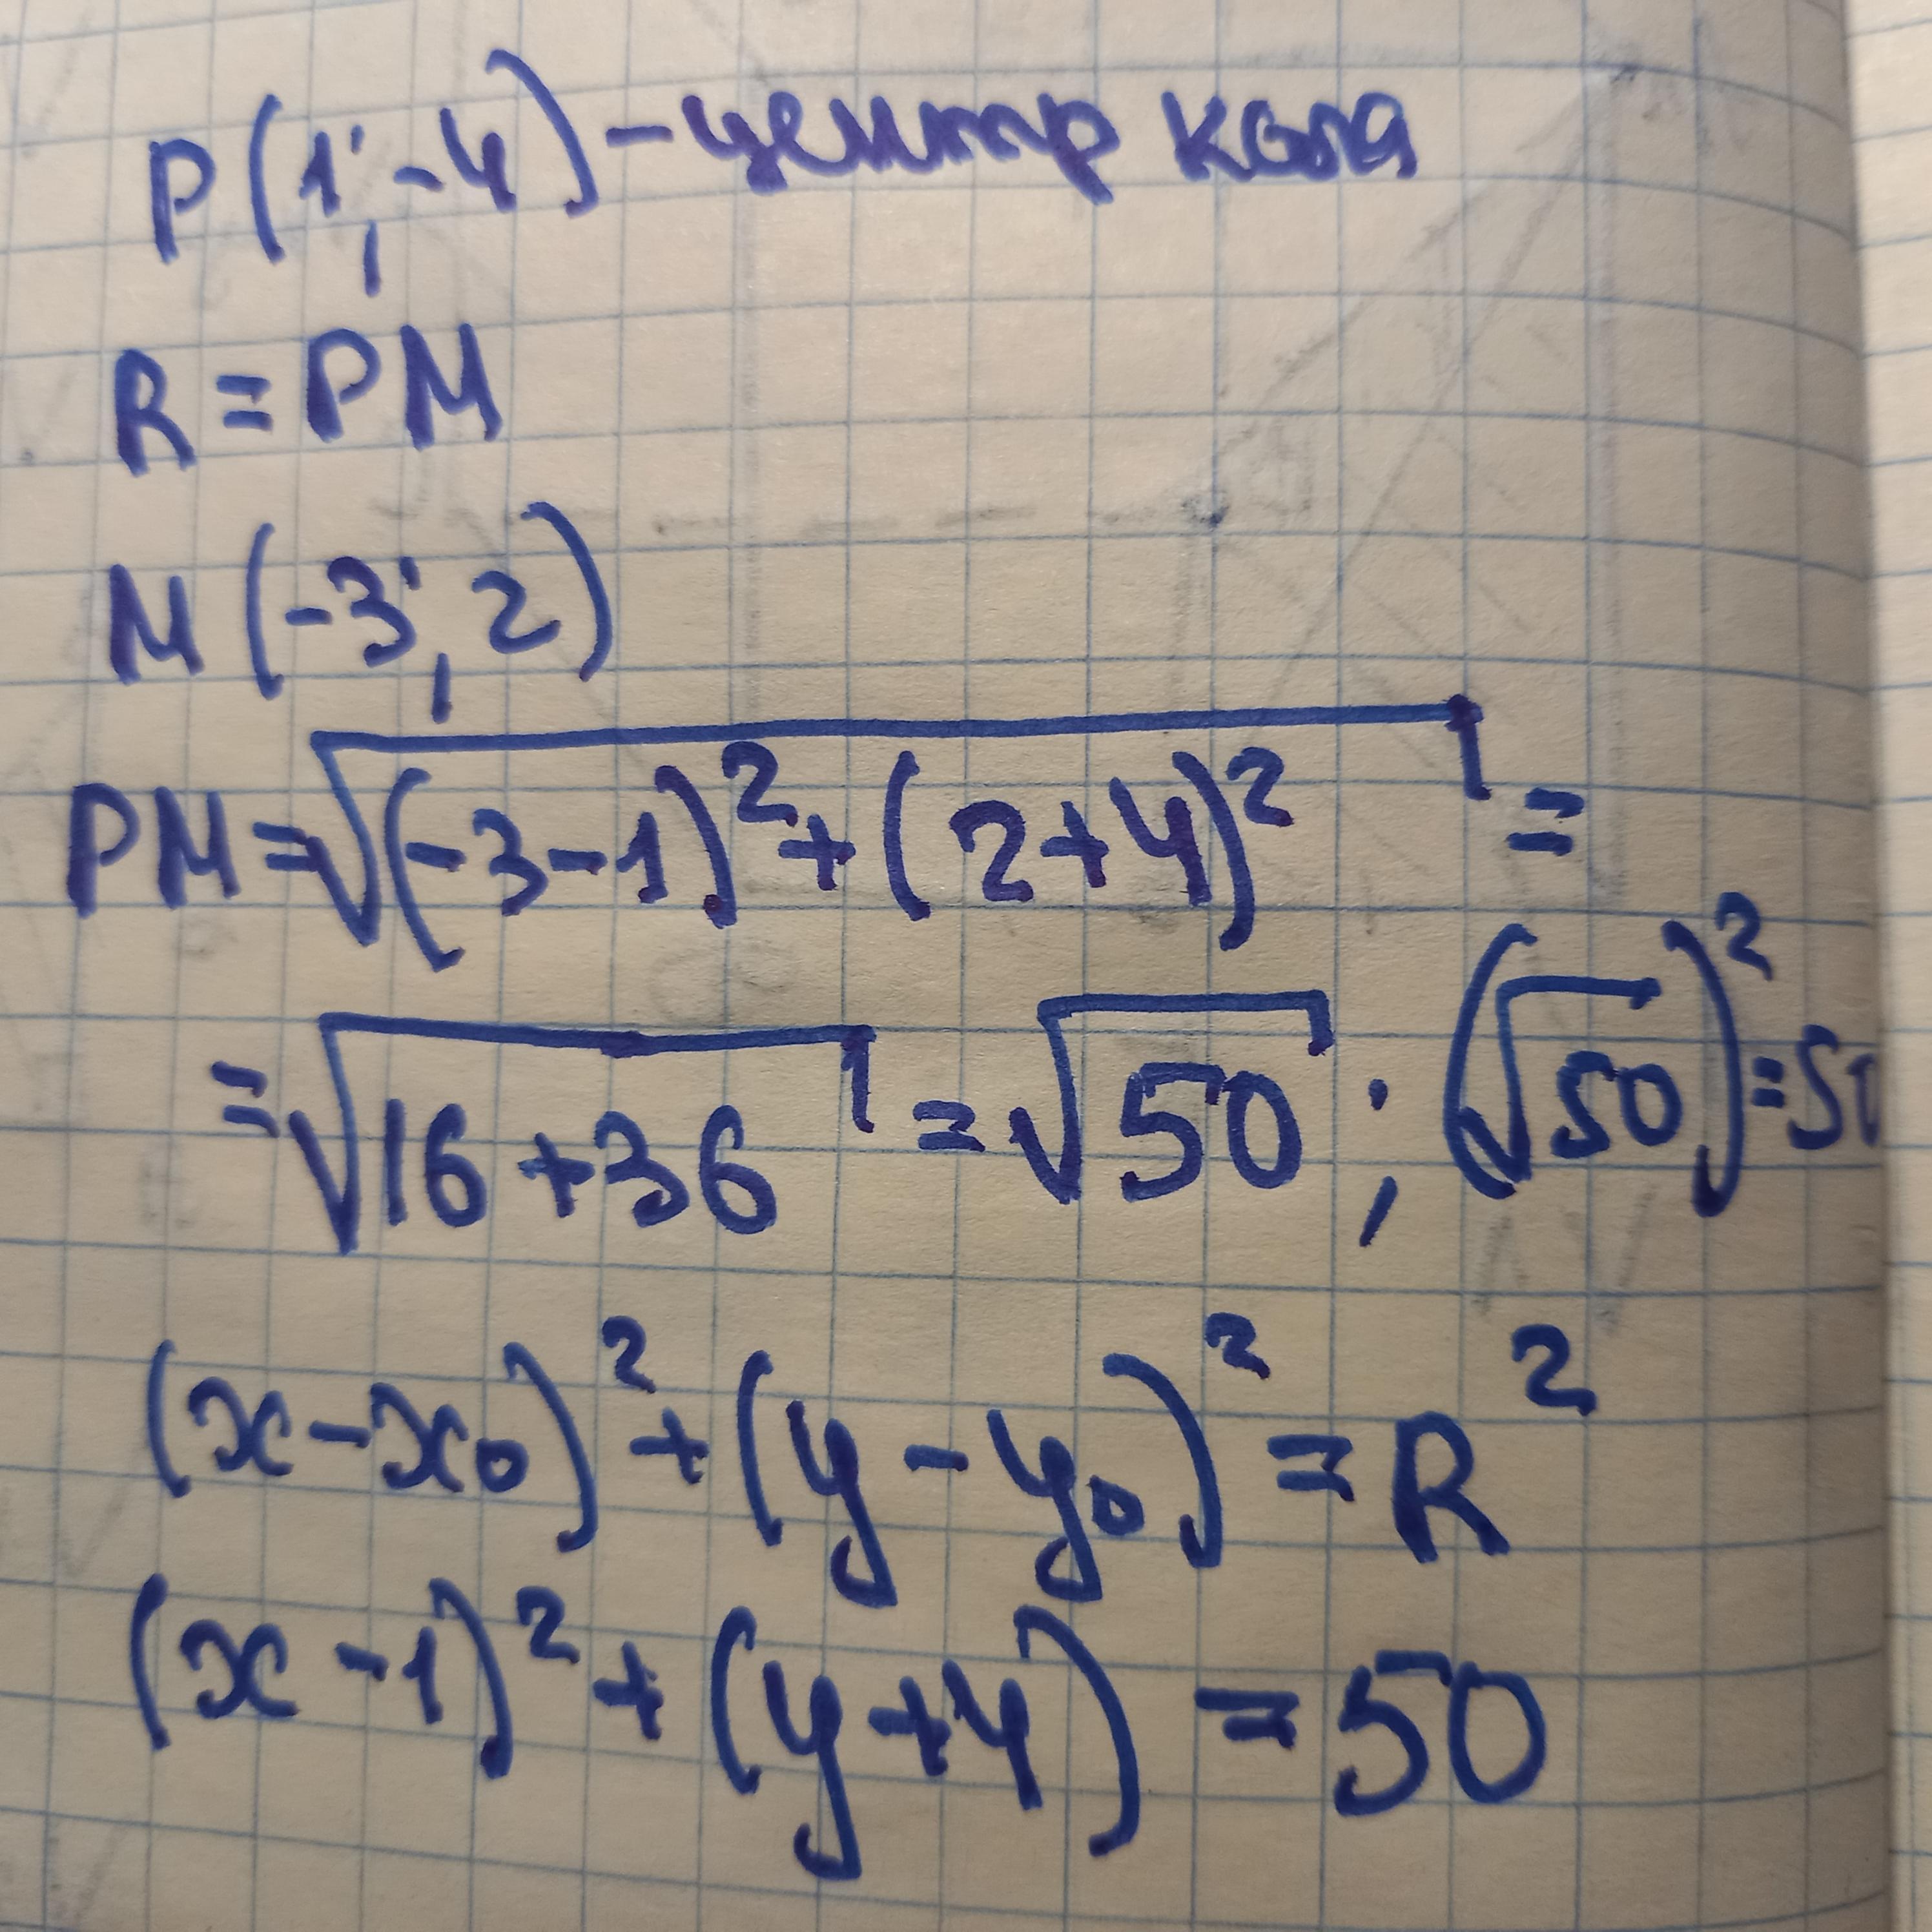 P(1; -4) - центр кола
R = PM
M(-3; 2)
PM = √((-3-1)² + (2+4)²) =
= √(16+36) = √50 ; (√50)² = 50
(x-x₀)² + (y-y₀)² = R²
(x-1)² + (y+4) = 50